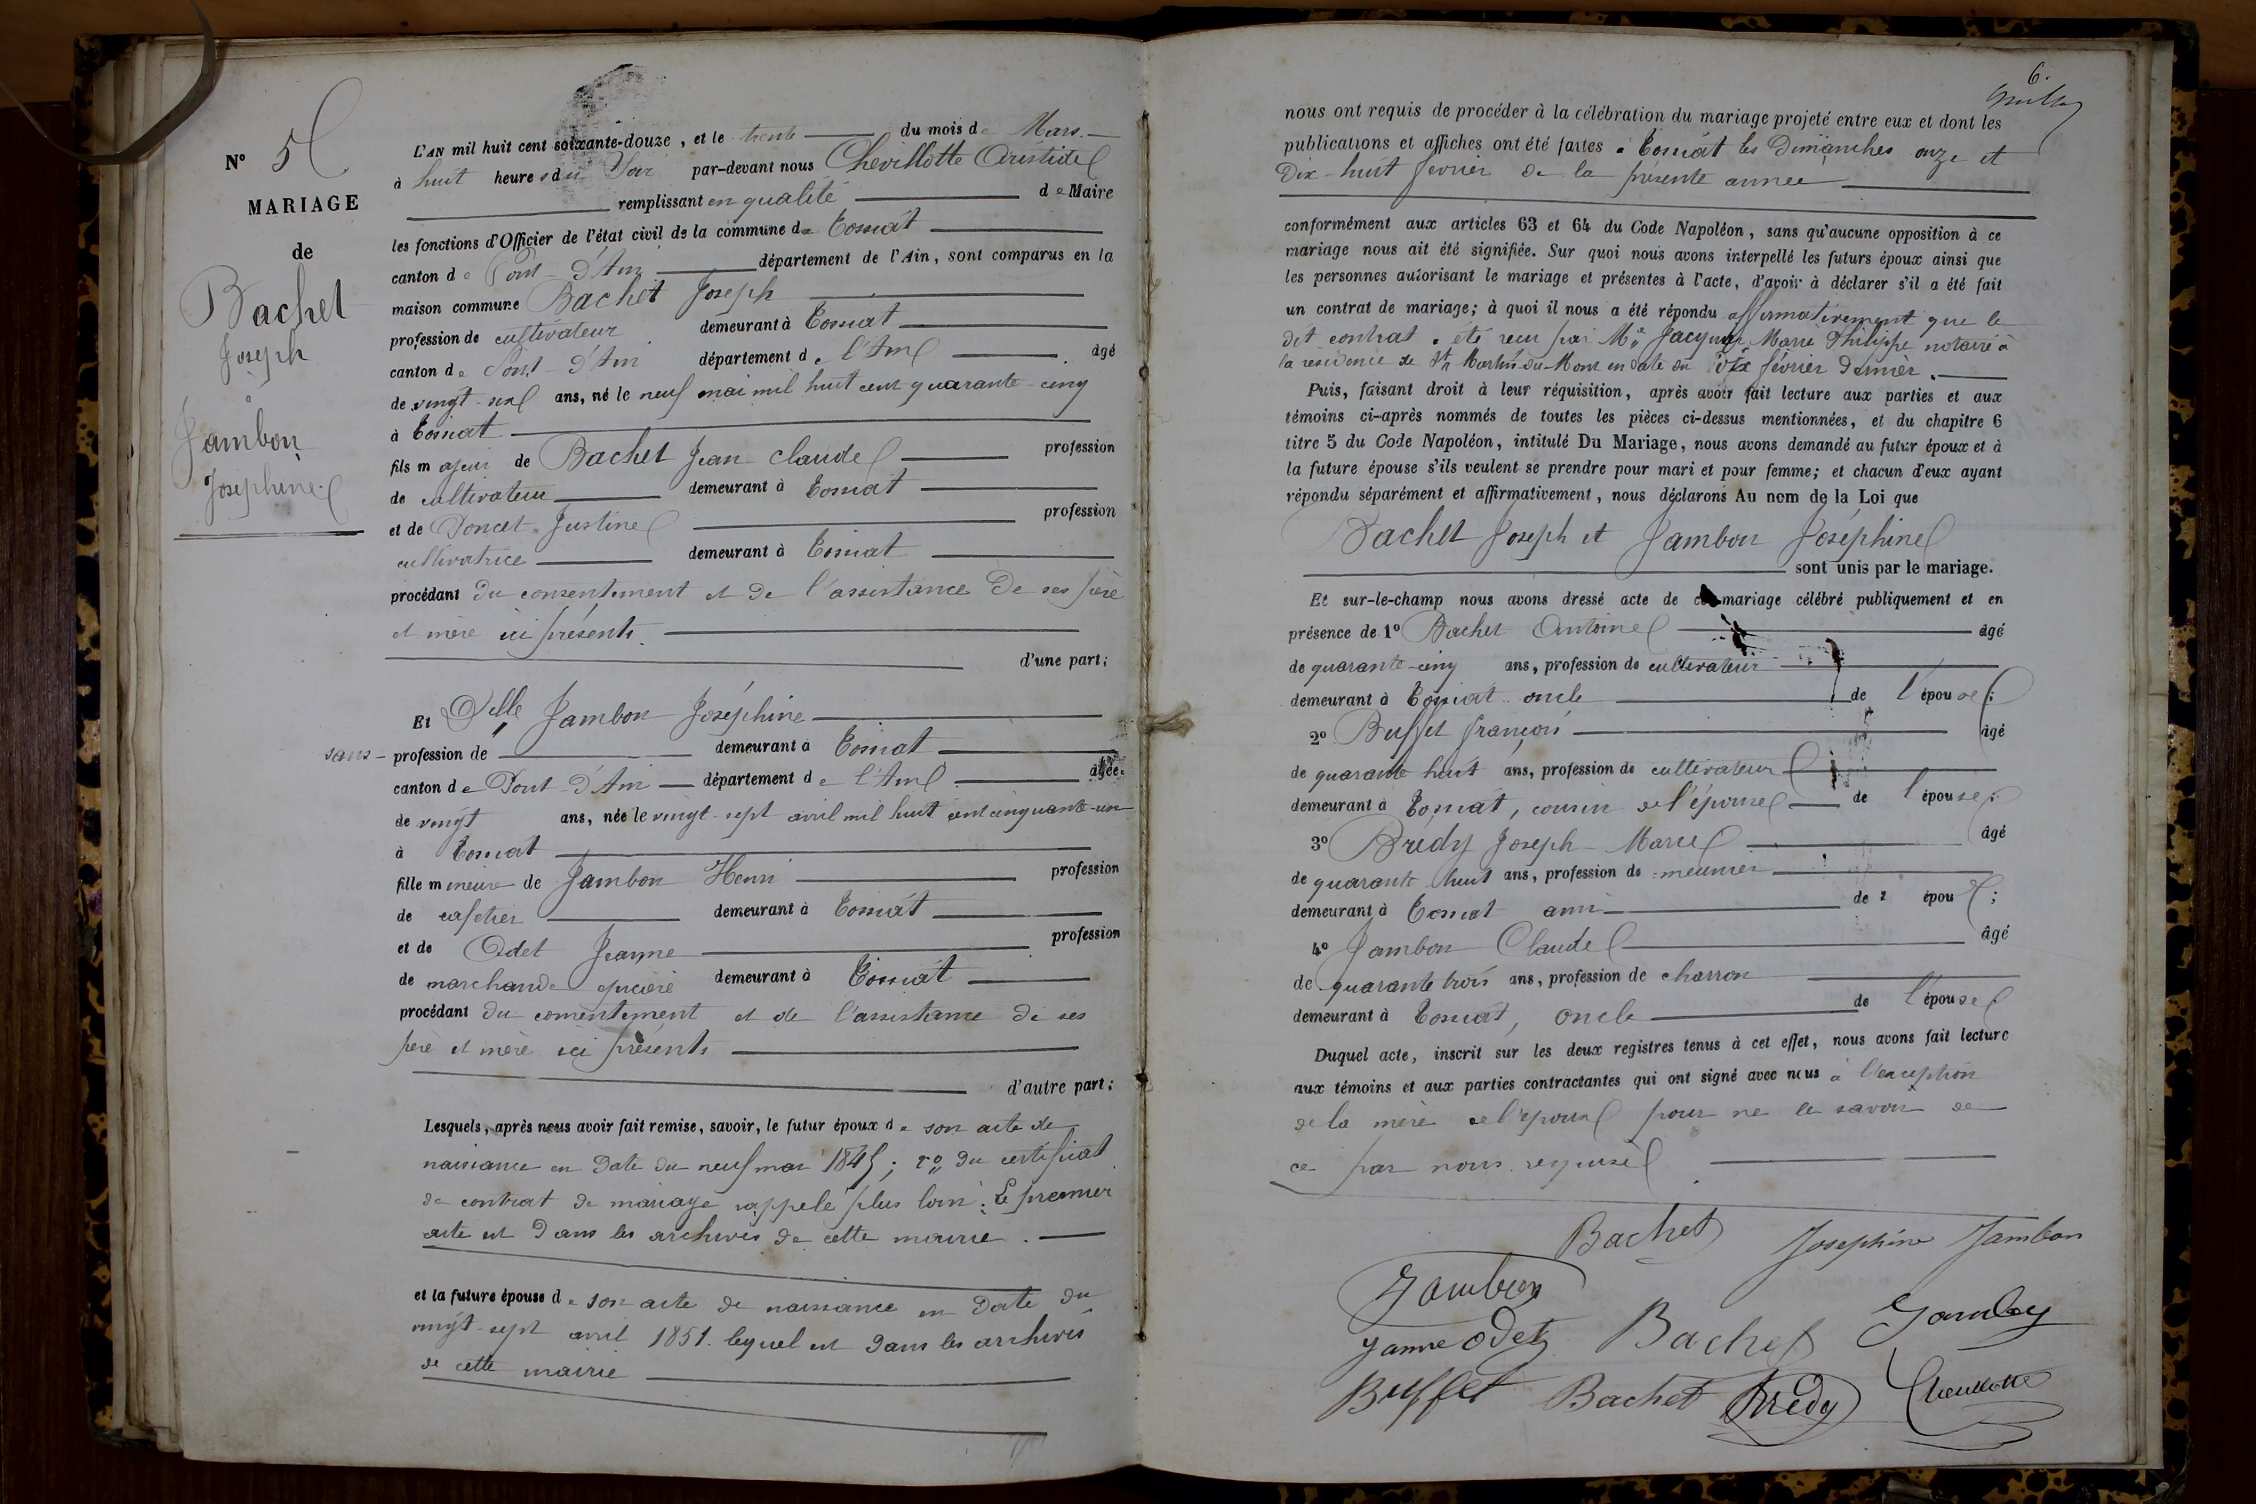 N° 5
MARIAGE
de
Bachet
Joseph
&
Jambon
Joséphine
L'AN mil huit cent soixante-douze, et le trente du mois de Mars
à huit heures du Soir par-devant nous Chevillotte Aristide
remplissant en qualité de Maire
les fonctions d'Officier de l'état civil de la commune de Tossiat
canton de Pont-d'Ain département de l'Ain, sont comparus en la
maison commune Bachet Joseph
profession de cultivateur demeurant à Tossiat
canton de Pont-d'Ain département de l'Ain âgé
de vingt-six ans, né le neuf mai mil huit cent quarante-cinq
à Tossiat
fils majeur de Bachet Jean Claude profession
de cultivateur demeurant à Tossiat
et de Poncet Justine profession
cultivatrice demeurant à Tossiat
procédant du consentement et de l'assistance de ses père
et mère ici présents
d'une part;
Et Delle Jambon Joséphine
sans profession de demeurant à Tossiat
canton de Pont-d'Ain département de l'Ain âgée
de vingt ans, née le vingt-sept avril mil huit cent cinquante-un
à Tossiat
fille mineure de Jambon Henri profession
de cafetier demeurant à Tossiat
et de Odet Jeanne profession
de marchande epicière demeurant à Tossiat
procédant du consentement et de l'assistance de ses
père et mère ici présents
d'autre part;
Lesquels, après nous avoir fait remise, savoir, le futur époux de son acte de
naissance en date du neuf mai 1845; 2° du certificat
de contrat de mariage rappelé plus loin. Le premier
acte est dans les archives de cette mairie.
et la future épouse de son acte de naissance en date du
vingt-sept avril 1851. lequel est dans les archives
de cette mairie
6.
nous ont requis de procéder à la célébration du mariage projeté entre eux et dont les
publications et affiches ont été faites à Tossiat les Dimanches onze et
Dix-huit février de la présente année
conformément aux articles 63 et 64 du Code Napoléon, sans qu'aucune opposition à ce
mariage nous ait été signifiée. Sur quoi nous avons interpellé les futurs époux ainsi que
les personnes autorisant le mariage et présentes à l'acte, d'avoir à déclarer s'il a été fait
un contrat de mariage; à quoi il nous a été répondu affirmativement que le
dit contrat a été reçu par Me Jacquier Marie Philippe notaire à
la résidence de St Martin-du-Mont en date du dix février dernier.
Puis, faisant droit à leur réquisition, après avoir fait lecture aux parties et aux
témoins ci-après nommés de toutes les pièces ci-dessus mentionnées, et du chapitre 6
titre 5 du Code Napoléon, intitulé Du Mariage, nous avons demandé au futur époux et à
la future épouse s'ils veulent se prendre pour mari et pour femme; et chacun d'eux ayant
répondu séparément et affirmativement, nous déclarons Au nom de la Loi que
Bachet Joseph et Jambon Joséphine
sont unis par le mariage.
Et sur-le-champ nous avons dressé acte de ce mariage célébré publiquement et en
présence de 1° Bachet Antoine âgé
de quarante-cinq ans, profession de cultivateur
demeurant à Tossiat oncle de l'épouse;
2° Buffet françois âgé
de quarante huit ans, profession de cultivateur
demeurant à Tossiat, cousin de l'épouse de l'épouse;
3° Brédy Joseph-Marie âgé
de quarante huit ans, profession de meunier
demeurant à Tossiat ami de l'époux;
4° Jambon Claude âgé
de quarante trois ans, profession de charron
demeurant à Tossiat, oncle de l'épouse
Duquel acte, inscrit sur les deux registres tenus à cet effet, nous avons fait lecture
aux témoins et aux parties contractantes qui ont signé avec nous à l'exception
de la mère de l'époux pour ne le savoir de
ce par nous requise
Bachet Joséphine Jambon
Jambon
Janne Odet Bachet Jambon
Buffet Bachet Brédy Chevillotte